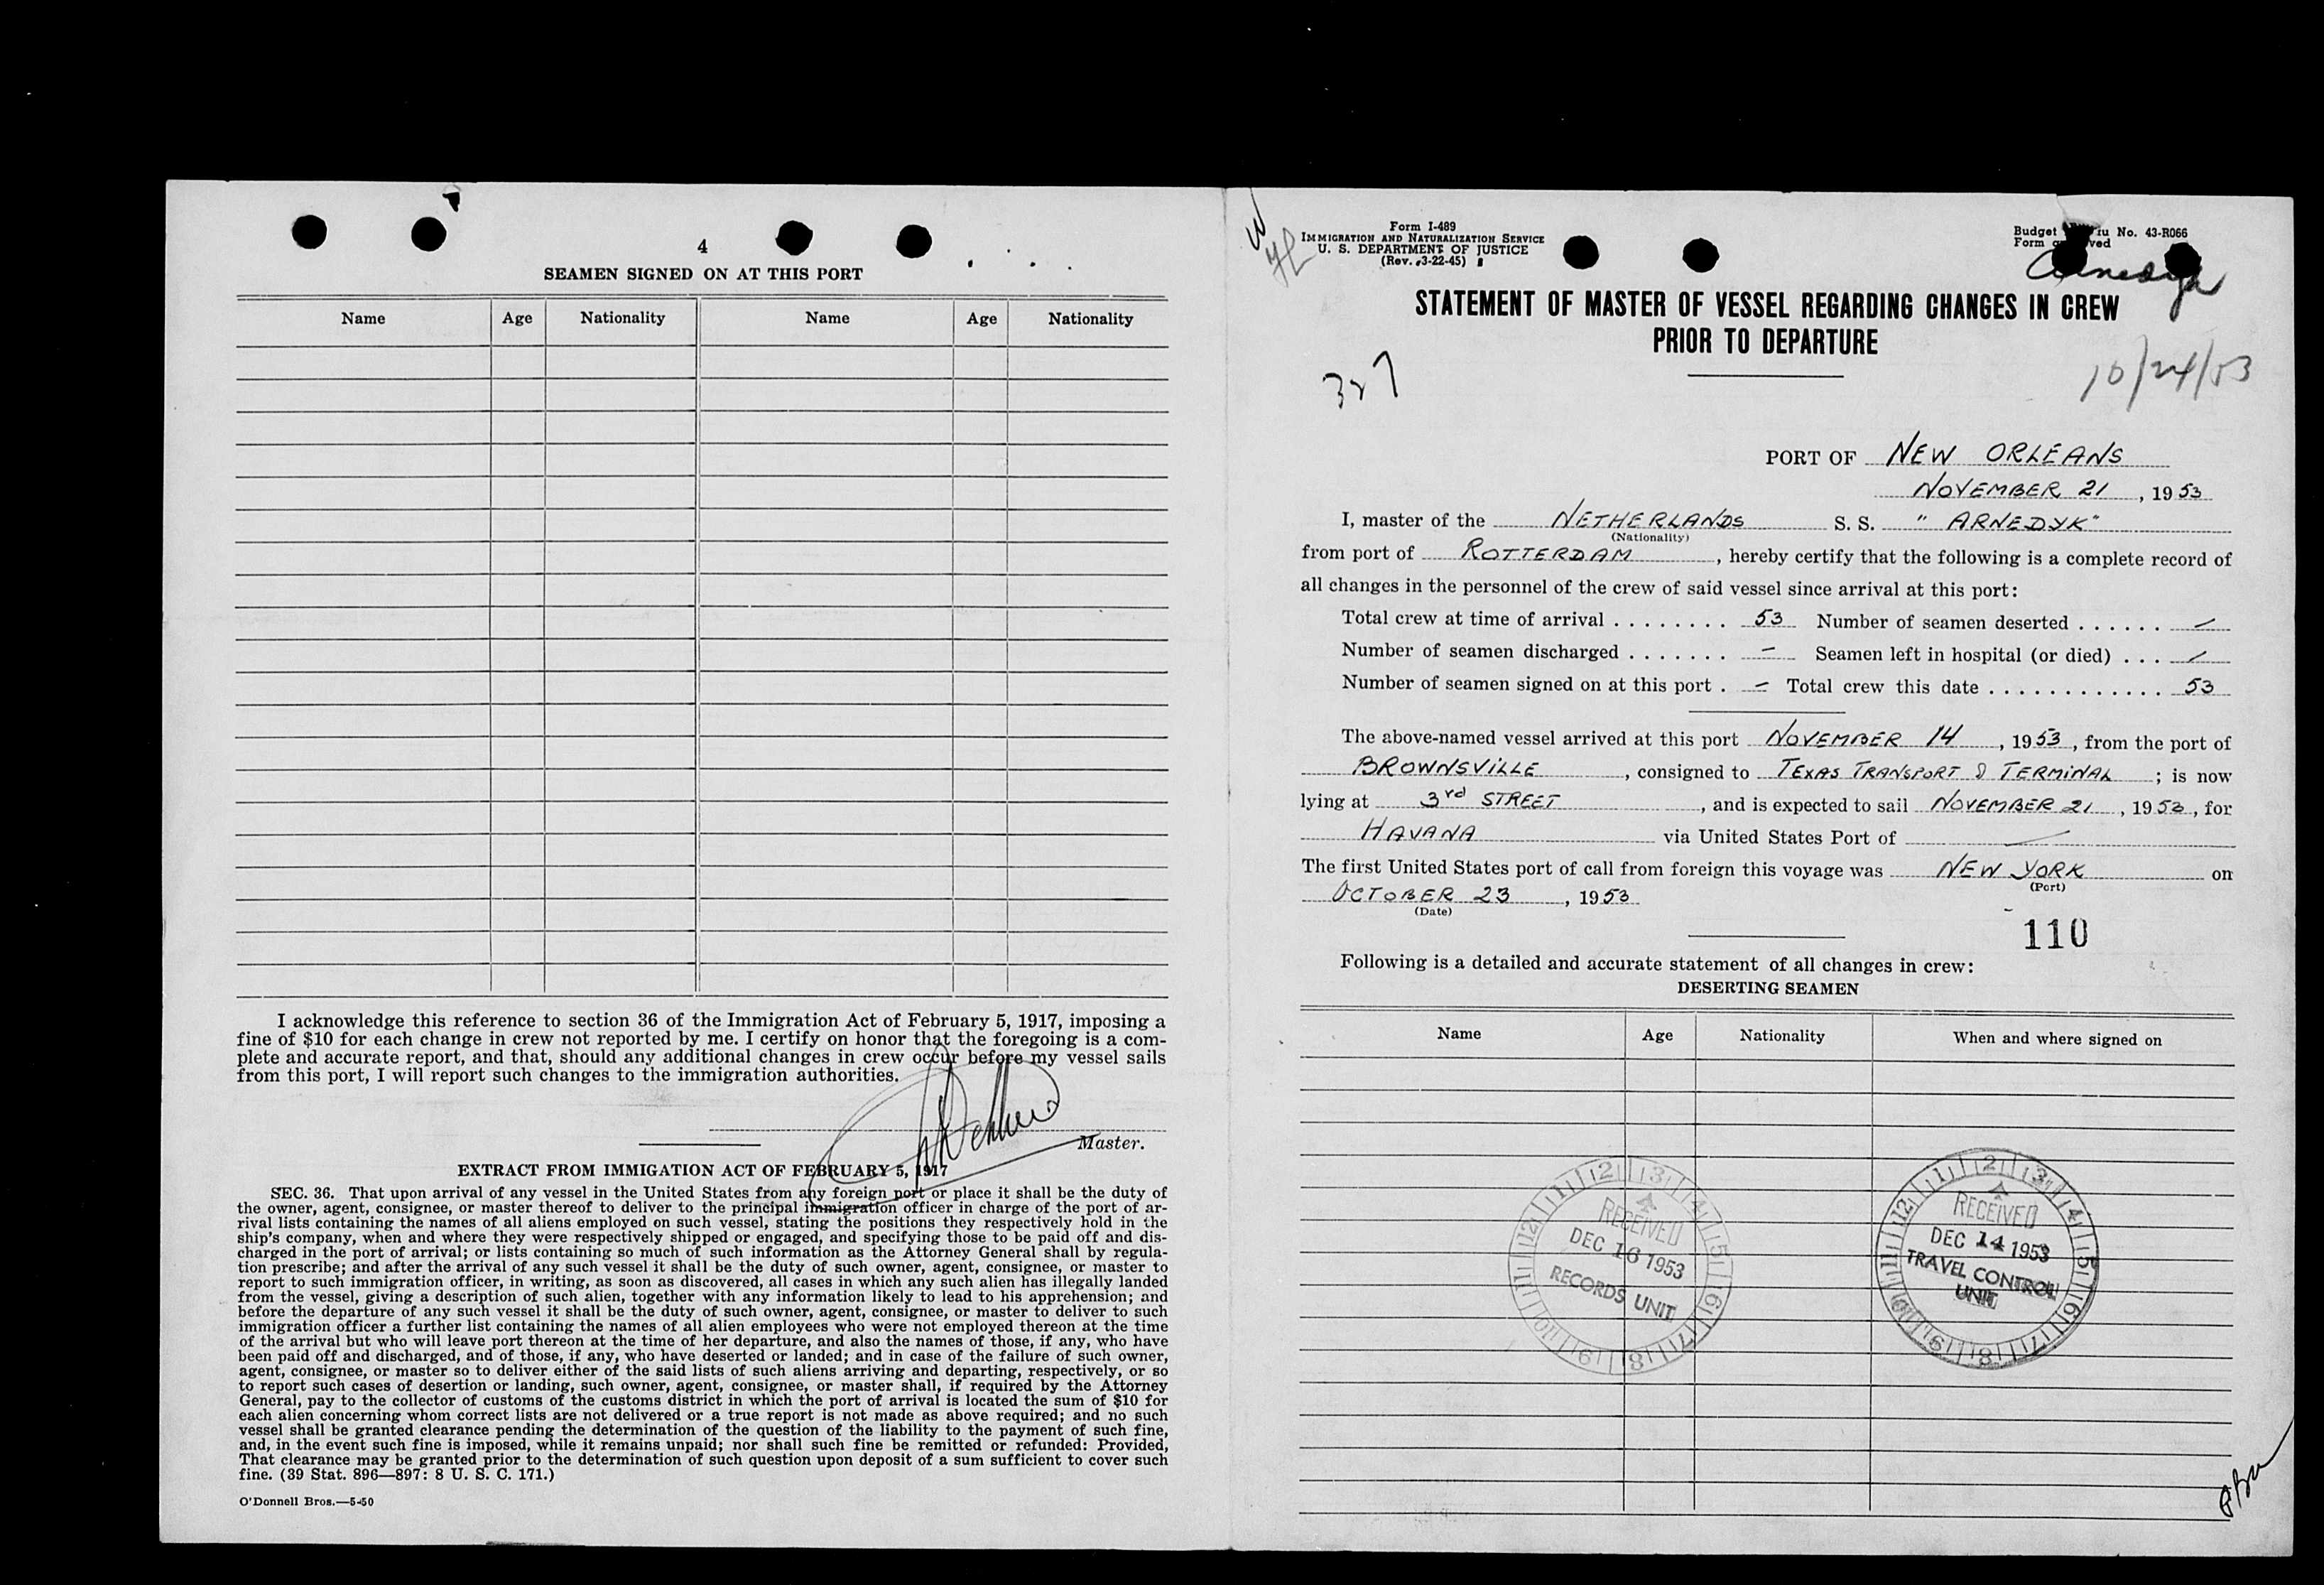 4
SEAMEN SIGNED ON AT THIS PORT
Name Age Nationality Name Age Nationality
I acknowledge this reference to section 36 of the Immigration Act of February 5, 1917, imposing a
fine of $10 for each change in crew not reported by me. I certify on honor that the foregoing is a com-
plete and accurate report, and that, should any additional changes in crew occur before my vessel sails
from this port, I will report such changes to the immigration authorities.
Master.
EXTRACT FROM IMMIGATION ACT OF FEBRUARY 5, 1917
SEC. 36. That upon arrival of any vessel in the United States from any foreign port or place it shall be the duty of
the owner, agent, consignee, or master thereof to deliver to the principal immigration officer in charge of the port of ar-
rival lists containing the names of all aliens employed on such vessel, stating the positions they respectively hold in the
ship's company, when and where they were respectively shipped or engaged, and specifying those to be paid off and dis-
charged in the port of arrival; or lists containing so much of such information as the Attorney General shall by regula-
tion prescribe; and after the arrival of any such vessel it shall be the duty of such owner, agent, consignee, or master to
report to such immigration officer, in writing, as soon as discovered, all cases in which any such alien has illegally landed
from the vessel, giving a description of such alien, together with any information likely to lead to his apprehension; and
before the departure of any such vessel it shall be the duty of such owner, agent, consignee, or master to deliver to such
immigration officer a further list containing the names of all alien employees who were not employed thereon at the time
of the arrival but who will leave port thereon at the time of her departure, and also the names of those, if any, who have
been paid off and discharged, and of those, if any, who have deserted or landed; and in case of the failure of such owner,
agent, consignee, or master so to deliver either of the said lists of such aliens arriving and departing, respectively, or so
to report such cases of desertion or landing, such owner, agent, consignee, or master shall, if required by the Attorney
General, pay to the collector of customs of the customs district in which the port of arrival is located the sum of $10 for
each alien concerning whom correct lists are not delivered or a true report is not made as above required; and no such
vessel shall be granted clearance pending the determination of the question of the liability to the payment of such fine,
and, in the event such fine is imposed, while it remains unpaid; nor shall such fine be remitted or refunded: Provided,
That clearance may be granted prior to the determination of such question upon deposit of a sum sufficient to cover such
fine. (39 Stat. 896—897: 8 U. S. C. 171.)
O'Donnell Bros.—5-50
Form I-489
IMMIGRATION AND NATURALIZATION SERVICE
U. S. DEPARTMENT OF JUSTICE
(Rev. 3-22-45)
Budget No. 43-R066
Form
Arnedyk
STATEMENT OF MASTER OF VESSEL REGARDING CHANGES IN CREW
PRIOR TO DEPARTURE
327
10/24/53
PORT OF NEW ORLEANS
NOVEMBER 21, 1953
I, master of the NETHERLANDS S. S. "ARNEDYK"
(Nationality)
from port of ROTTERDAM, hereby certify that the following is a complete record of
all changes in the personnel of the crew of said vessel since arrival at this port:
Total crew at time of arrival ........ 53 Number of seamen deserted ...... —
Number of seamen discharged ....... — Seamen left in hospital (or died) ... —
Number of seamen signed on at this port . — Total crew this date ............ 53
The above-named vessel arrived at this port NOVEMBER 14, 1953, from the port of
BROWNSVILLE, consigned to TEXAS TRANSPORT & TERMINAL; is now
lying at 3rd STREET, and is expected to sail NOVEMBER 21, 1953, for
HAVANA via United States Port of —
The first United States port of call from foreign this voyage was NEW YORK on
(Port)
OCTOBER 23, 1953
(Date)
110
Following is a detailed and accurate statement of all changes in crew:
DESERTING SEAMEN
Name Age Nationality When and where signed on
12 1 2 3 4 5 6 7 8 9 10 11
RECEIVED
DEC 16 1953
RECORDS UNIT
12 1 2 3 4 5 6 7 8 9 10 11
RECEIVED
DEC 14 1953
TRAVEL CONTROL
UNIT